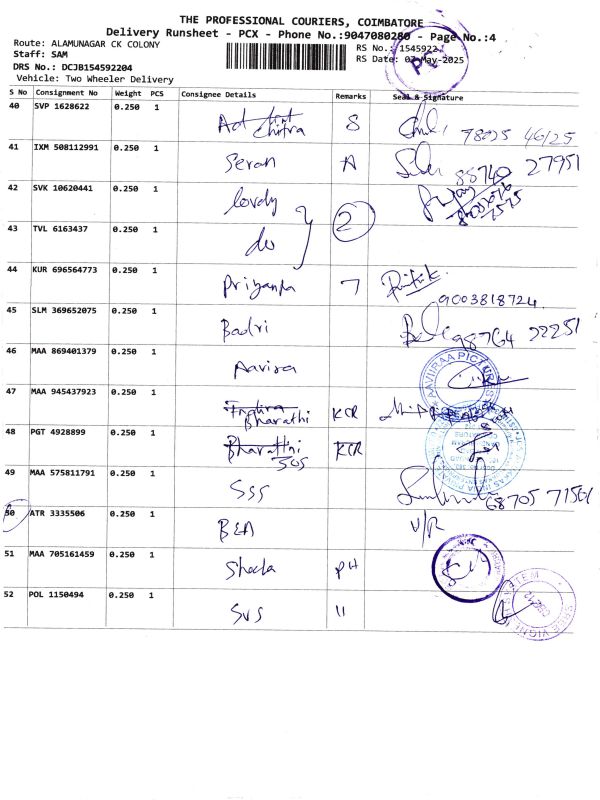 THE PROFESSIONAL COURIERS, COIMBATORE
Delivery Runsheet - PCX - Phone No.:9047080280 - Page No.:4
Route: ALAMUNAGAR CK COLONY
RS No.: 1545922
Staff: SAM
RS Date: 03-May-2025
DRS No.: DCJB154592204
Vehicle: Two Wheeler Delivery
S No Consignment No Weight PCS Consignee Details Remarks Seal & Signature
40 SVP 1628622 0.250 1 Chitra 8 78025 46125
41 IXM 508112991 0.250 1 Seran A 88740 27951
42 SVK 10620441 0.250 1 lovely 2
43 TVL 6163437 0.250 1 do
44 KUR 696564773 0.250 1 Priyanka 7 9003818724
45 SLM 369652075 0.250 1 Badri 98764 22251
46 MAA 869401379 0.250 1 Aavira AAVIIRAA PICTURES
47 MAA 945437923 0.250 1 Indira Bharathi KCR
48 PGT 4928899 0.250 1 Bharathi SUS KCR
49 MAA 575811791 0.250 1 SSS 68705 71561
50 ATR 3335506 0.250 1 B&A V/R
51 MAA 705161459 0.250 1 Sheela PH
52 POL 1150494 0.250 1 SVS 11